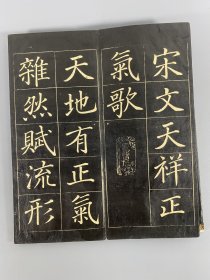 宋文天祥正
氣歌
天地有正氣
雜然賦流形